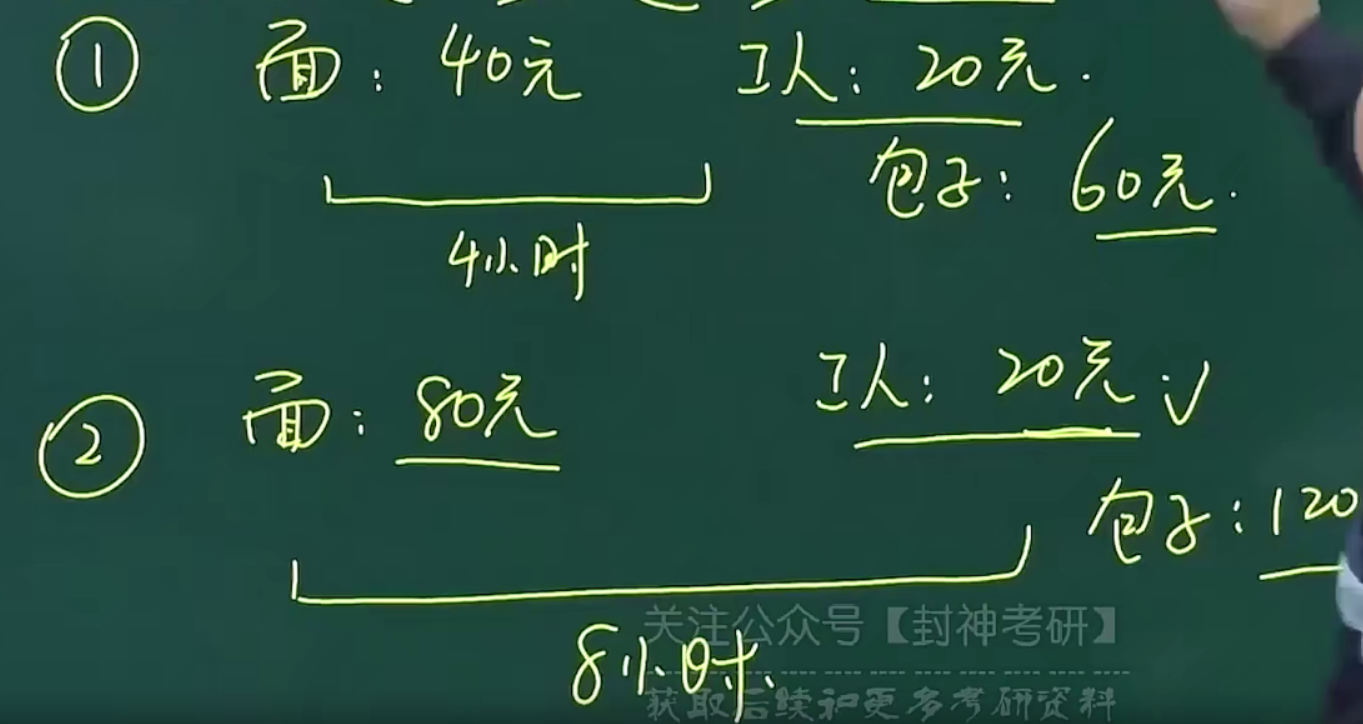 ① 面：40元 工人：20元.
包子：60元.
4小时
② 面：80元 工人：20元 ;√
包子：120
8小时.
关注公众号【封神考研】
获取后续和更多考研资料